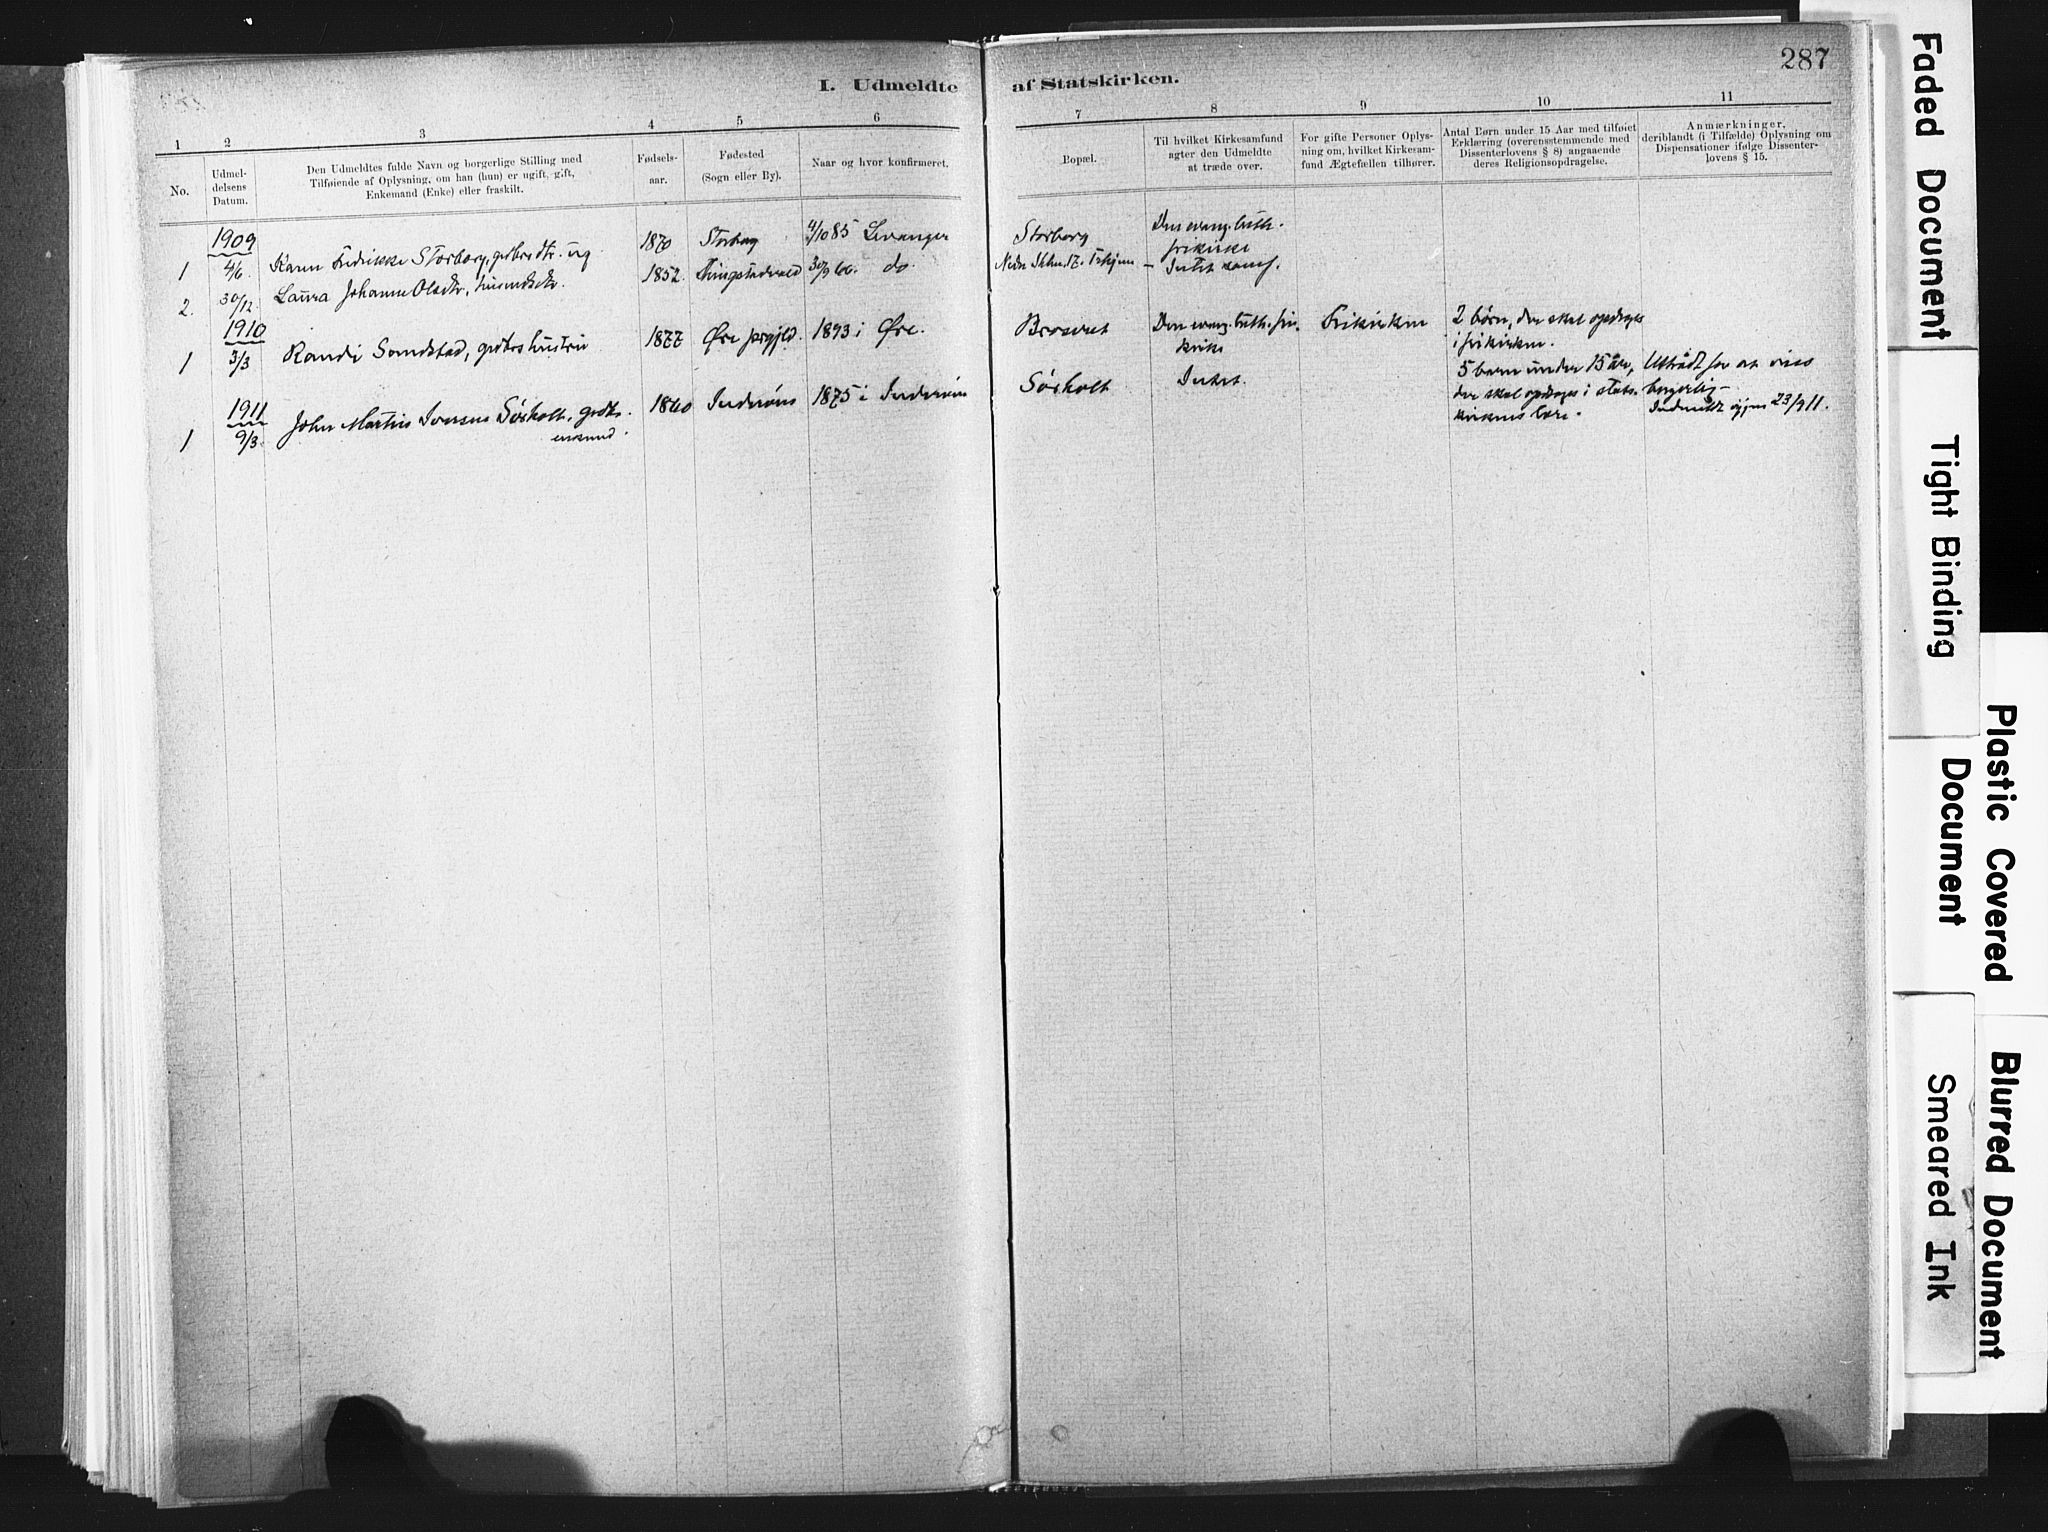 287
I. Udmeldte af Statskirken.
1 2 3 4 5 6 7 8 9 10 11
No.
Udmel-
delsens
Datum.
Den Udmeldtes fulde Navn og borgerlige Stilling med
Tilføiende af Oplysning, om han (hun) er ugift, gift,
Enkemand (Enke) eller fraskilt.
Fødsels-
aar.
Fødested
(Sogn eller By).
Naar og hvor konfirmeret.
Bopæl.
Til hvilket Kirkesamfund
agter den Udmeldte
at træde over.
For gifte Personer Oplys-
ning om, hvilket Kirkesam-
fund Ægtefællen tilhører.
Antal Børn under 15 Aar med tilføiet
Erklæring (overensstemmende med
Dissenterlovens § 8) angaaende
deres Religionsopdragelse.
Anmærkninger,
deriblandt (i Tilfælde) Oplysning om
Dispensationer ifølge Dissenter-
lovens § 15.
1909
1 4/6 Karen Fredrikke Storborg, gdbrs dtr. ug 1870 Storborg 4/10 85 Levanger Storborg Den evang. luth.
frikirke
2. 30/12 Laura Johanne Olsdtr, husmdsdtr. 1852 30/9 66. do. Intet samf.
1910
1 3/3 Randi Sandstad, gdbrs hustru 1877 Øre prgjeld. 1893 i Øre. Den evang. luth. fri-
kirke
Frikirken
2 børn, der skal opdrages
i frikirken.
1911
1 9/3 John Martin Iversen Sørholt, gdbr.
enkemd.
1860 Inderøen 1875 i Inderøen Sørholt Intet.
5 børn under 15 år,
der skal opdrages i stats-
kirkens lære.
Uttrådt for at vies
borgerlig -
Indmeldt igjen 23/9 11.
Faded Document
Tight Binding
Plastic Covered
Document
Blurred Document
Smeared Ink